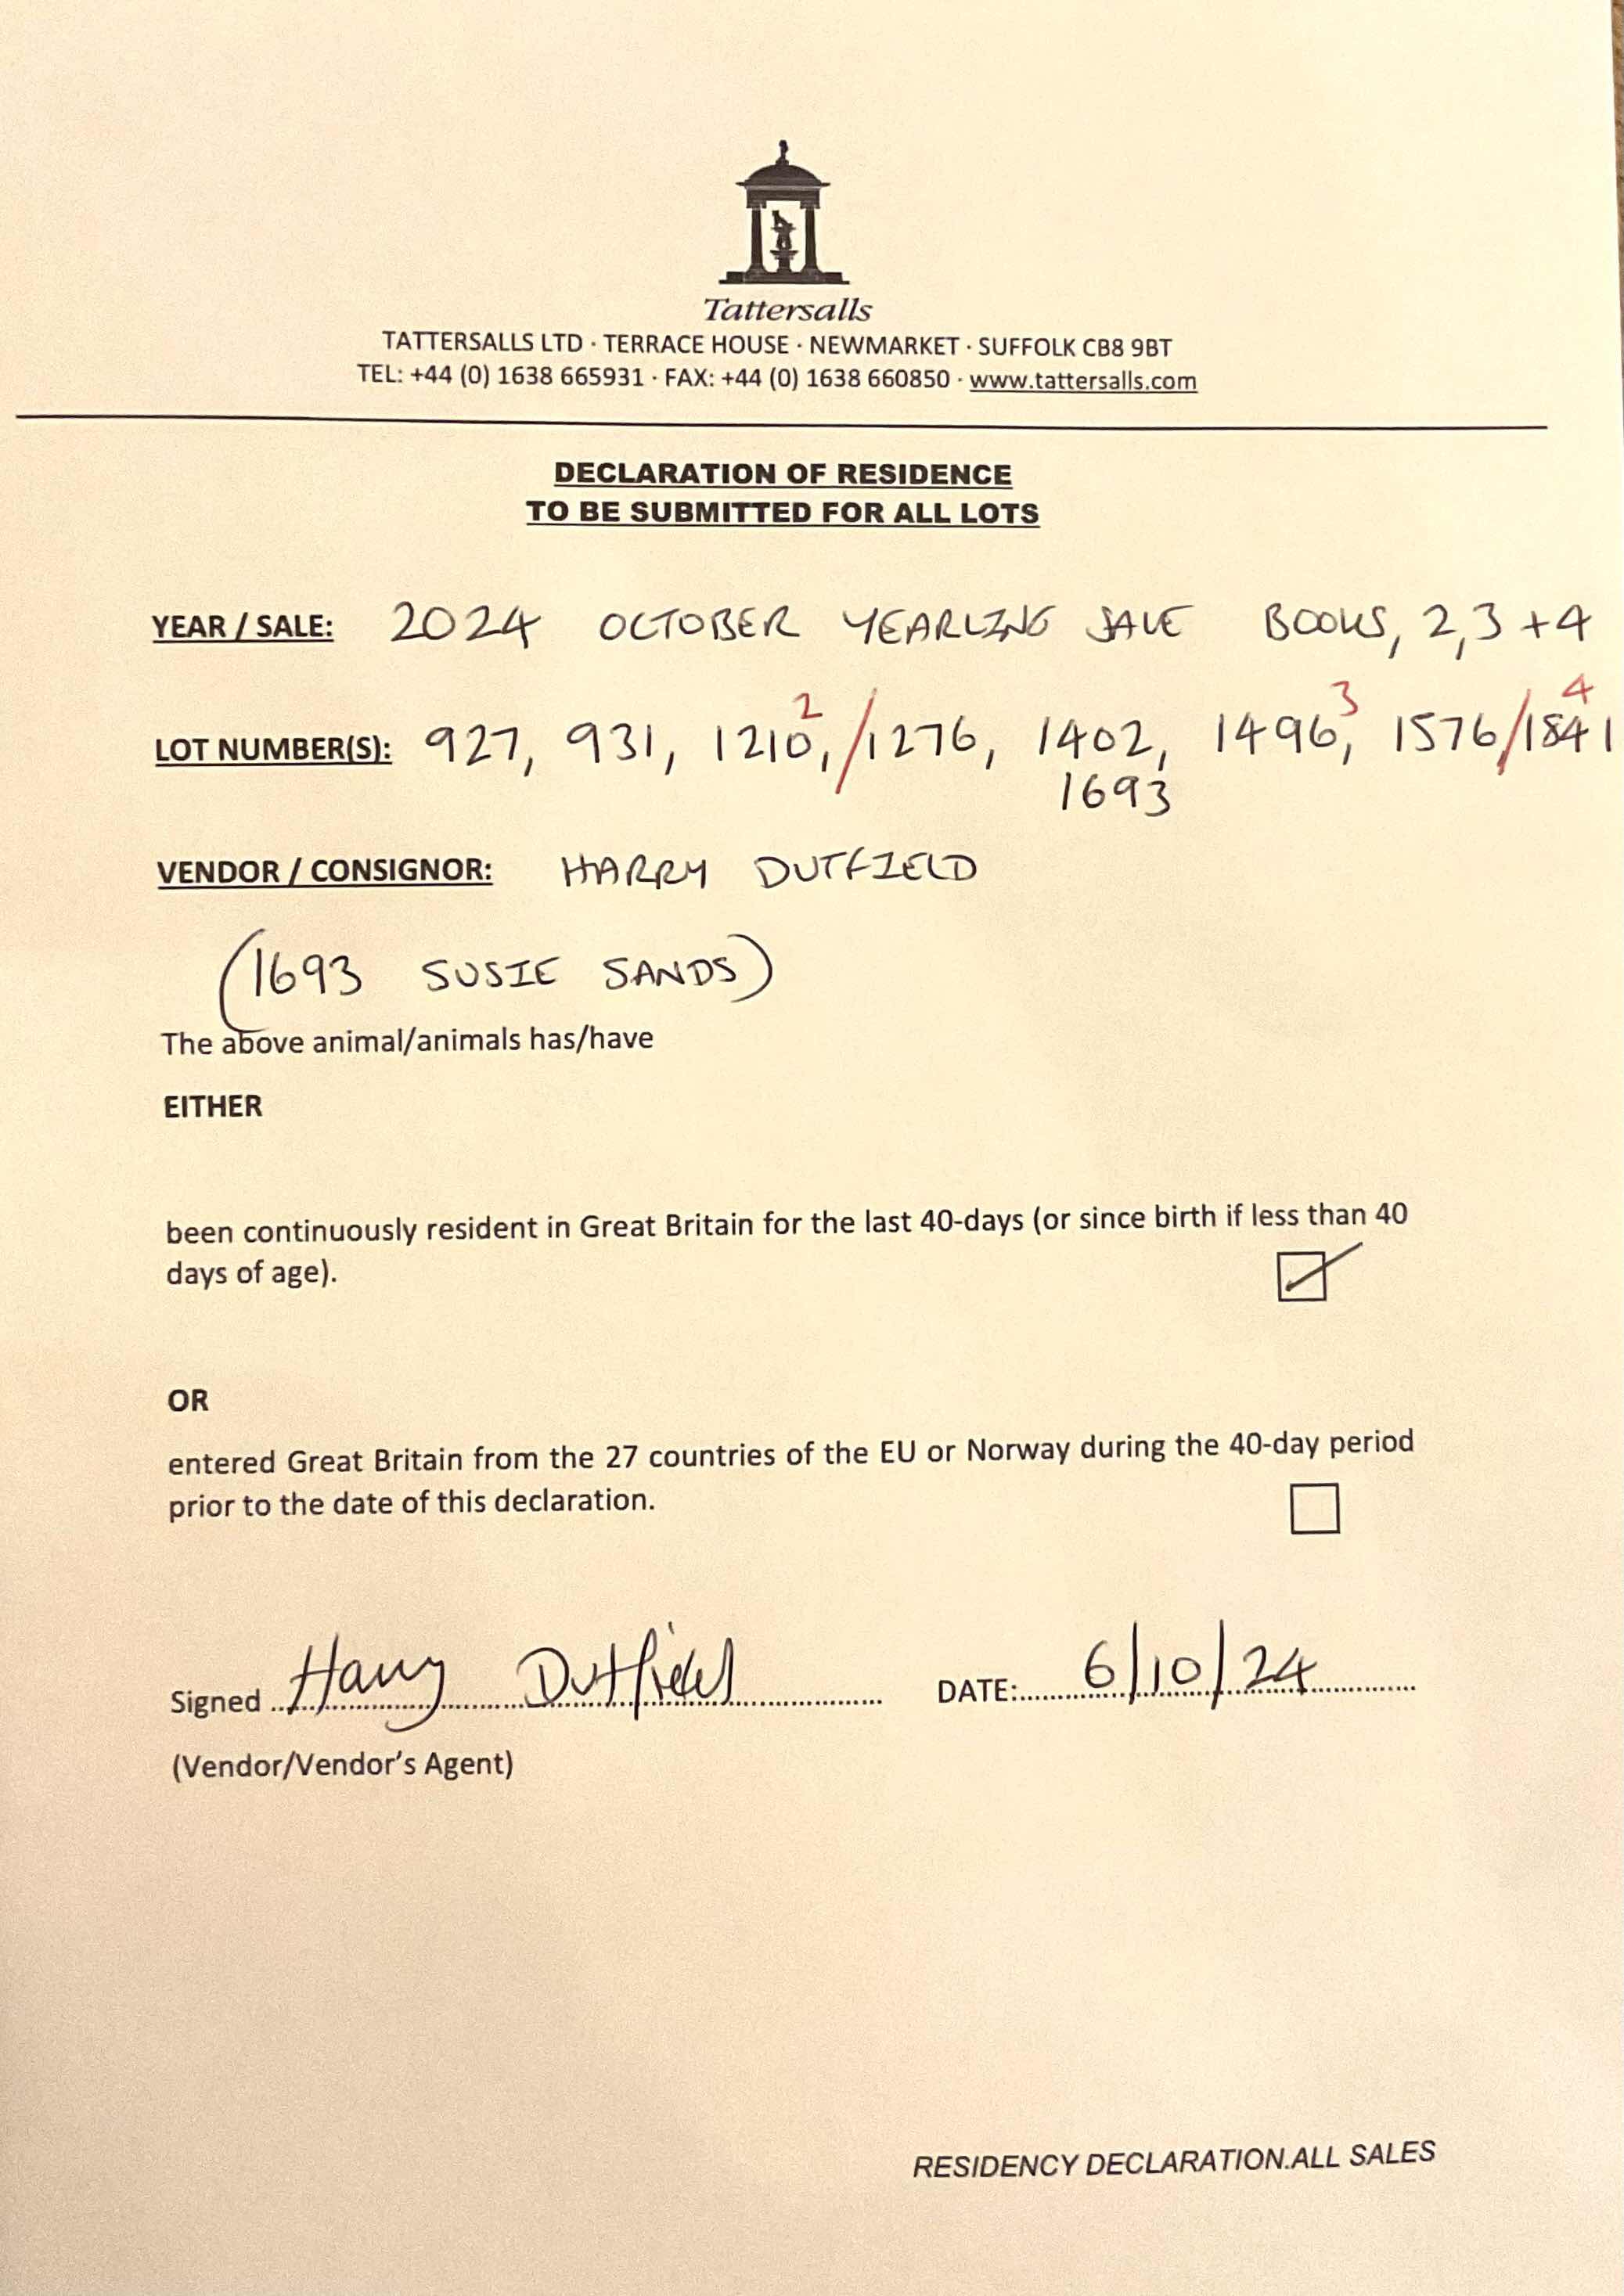 Tattersalls
TATTERSALLS LTD · TERRACE HOUSE · NEWMARKET · SUFFOLK CB8 9BT
TEL: +44 (0) 1638 665931 · FAX: +44 (0) 1638 660850 · www.tattersalls.com
DECLARATION OF RESIDENCE
TO BE SUBMITTED FOR ALL LOTS
YEAR / SALE: 2024 OCTOBER YEARLING SALE BOOKS, 2,3 + 4
2 3 4
LOT NUMBER(S): 927, 931, 1210, / 1276, 1402, 1496, 1576 / 1841
1693
VENDOR / CONSIGNOR: HARRY DUTFIELD
(1693 SUSIE SANDS)
The above animal/animals has/have
EITHER
been continuously resident in Great Britain for the last 40-days (or since birth if less than 40
days of age).
OR
entered Great Britain from the 27 countries of the EU or Norway during the 40-day period
prior to the date of this declaration.
Signed Harry Dutfield DATE: 6/10/24
(Vendor/Vendor's Agent)
RESIDENCY DECLARATION.ALL SALES